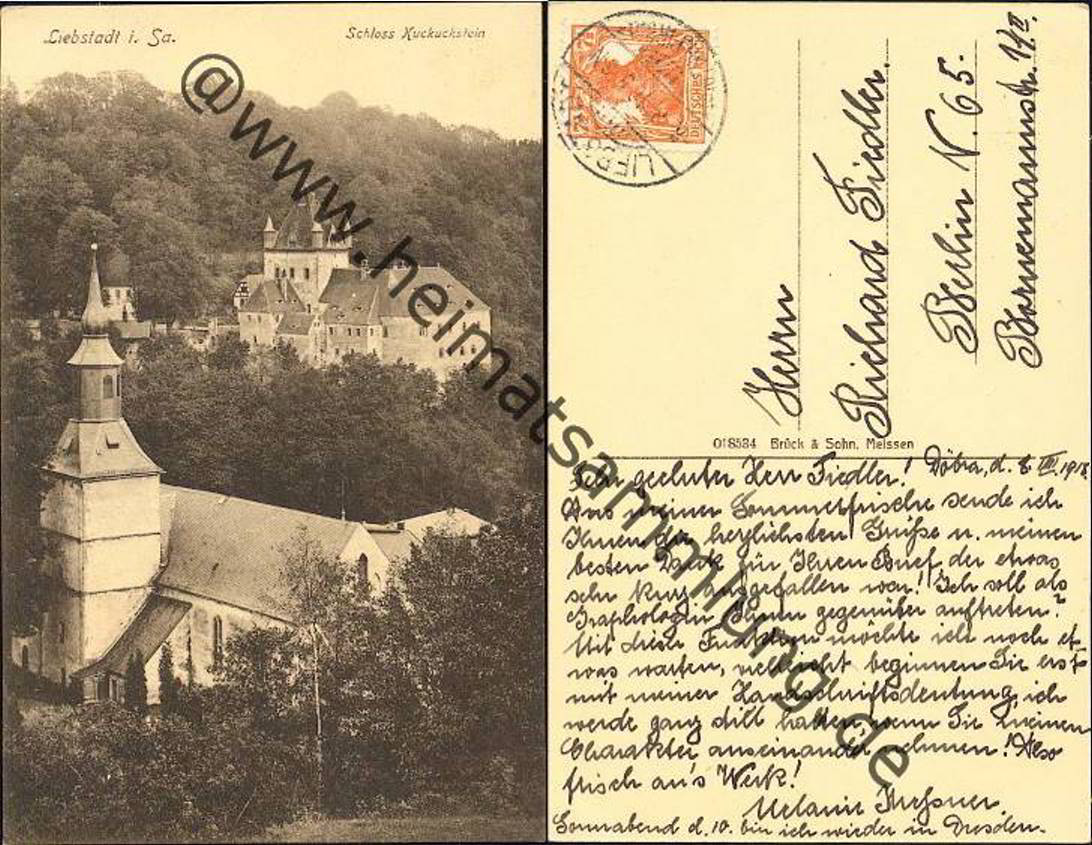 Liebstadt i. Sa.
Schloss Kuckuckstein
@www.heimatsammlung.de
DEUTSCHES
Herrn
Richard Fiedler.
Berlin N. 65.
Bornemannstr. 14 II.
018534 Brück & Sohn, Meissen
Döbra, d. 8. VIII. 1918
Sehr geehrter Herr Fiedler!
Aus meiner Sommerfrische sende ich
Ihnen die herzlichsten Grüße u. meinen
besten Dank für Ihren Brief, der etwas
sehr kurz ausgefallen war! Ich soll als
Graphologin Ihnen gegenüber auftreten?
Mit dieser Funktion möchte ich noch et-
was warten, vielleicht beginnen Sie erst
mit meiner Handschriftsdeutung, ich
werde ganz still halten, wenn Sie meinen
Charakter auseinander nehmen! Also
frisch an's Werk!
Melanie
Sonnabend d. 10. bin ich wieder in Dresden.